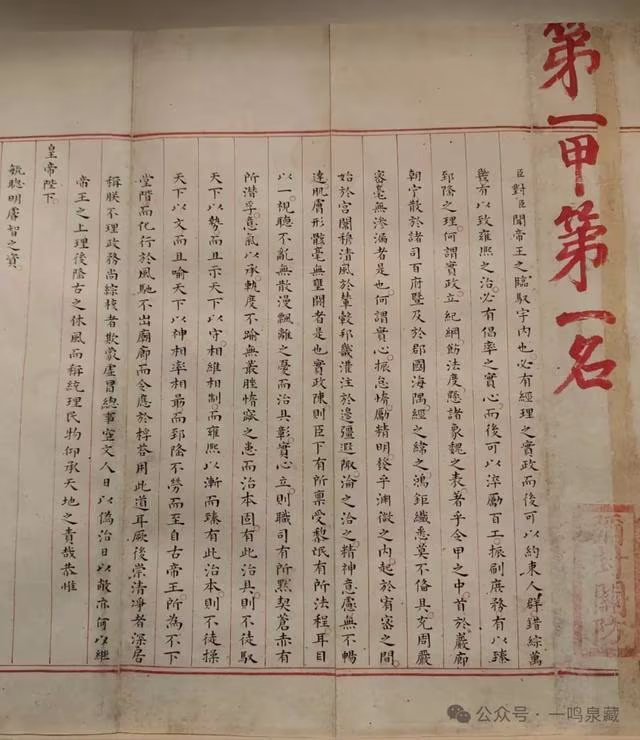 第一甲第一名
臣對臣聞帝王之臨馭宇內也必有經理之實政而後可以約束人群錯綜萬
幾有以致雍熙之治必有倡率之實心而後可以淬勵百工振刷庶務有以臻
郅隆之理何謂實政立紀綱飭法度懸諸象魏之表著乎令甲之中首於嚴廊
朝宁散於諸司百府暨及於郡國海隅經之緯之鴻鉅纖悉莫不俻具充周嚴
密毫無滲漏者是也何謂實心振怠惰勵精明發乎淵微之內起於宥密之間
始於宮闈穆清風於輦轂邦畿灌注於邊疆遐陬淪之洽之精神意慮無不暢
達肌膚形骸毫無壅閼者是也實政陳則臣下有所稟受黎氓有所法程耳目
以一視聽不亂無散漫飄離之憂而治具彰實心立則職司有所默契蒼赤有
所潛孚意氣以承軌度不踰無叢脞惰窳之患而治本固有此治具則不徒馭
天下以勢而且示天下以守相維相制而雍熙以漸而臻有此治本則不徒操
天下以文而且喻天下以神相率相勗而郅隆不勞而至自古帝王所為不下
堂階而化行於風馳不出廟廊而令應於桴荅用此道耳厥後崇清凈者深居
稱朕不理政務尚綜核者欺蒙虛冒總事空文人日以偽治日以敝亦何以繼
帝王之上理後隆古之休風而稱統理民物仰承天地之責哉恭惟
皇帝陛下
毓聰明睿智之資
彌封關防
公众号·一鸣泉藏